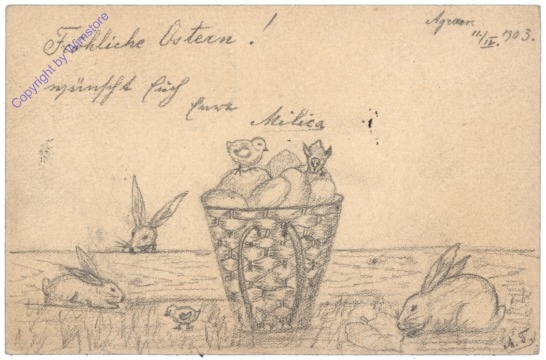 Agram
11/IV. 903.
Fröhliche Ostern!
wünscht Euch
Eure
Milica
Copyright by Wimstore